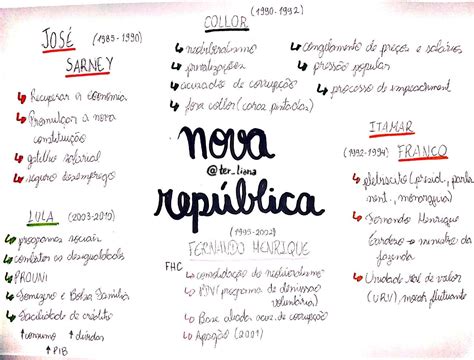 JOSÉ (1985-1990)
SARNEY
Recuperar a economia
Promulgar a nova
constituição
gatilho salarial
seguro desemprego
COLLOR (1990-1992)
neoliberalismo
privatizações
acusados de corrupção
fora collor (caras pintadas)
congelamento de preços e salários
pressão popular
processo de impeachment
nova
@ter_liana
república
ITAMAR
(1992-1994) FRANCO
plebiscito (presid., parla
ment., monarquia)
Fernando Henrique
Cardoso → ministro da
fazenda
Unidade real de valor
(URV), moeda flutuante
LULA (2003-2010)
programas sociais
combater as desigualdades
PROUNI
Fomezero e Bolsa Família
facilidade de crédito
↑consumo ↑dívidas
↑PIB
(1995-2002)
FERNANDO HENRIQUE
FHC
consolidação do neoliberalismo
PDV (programa de demissão
voluntária)
Base aliada acus. de corrupção
Apagão (2001)